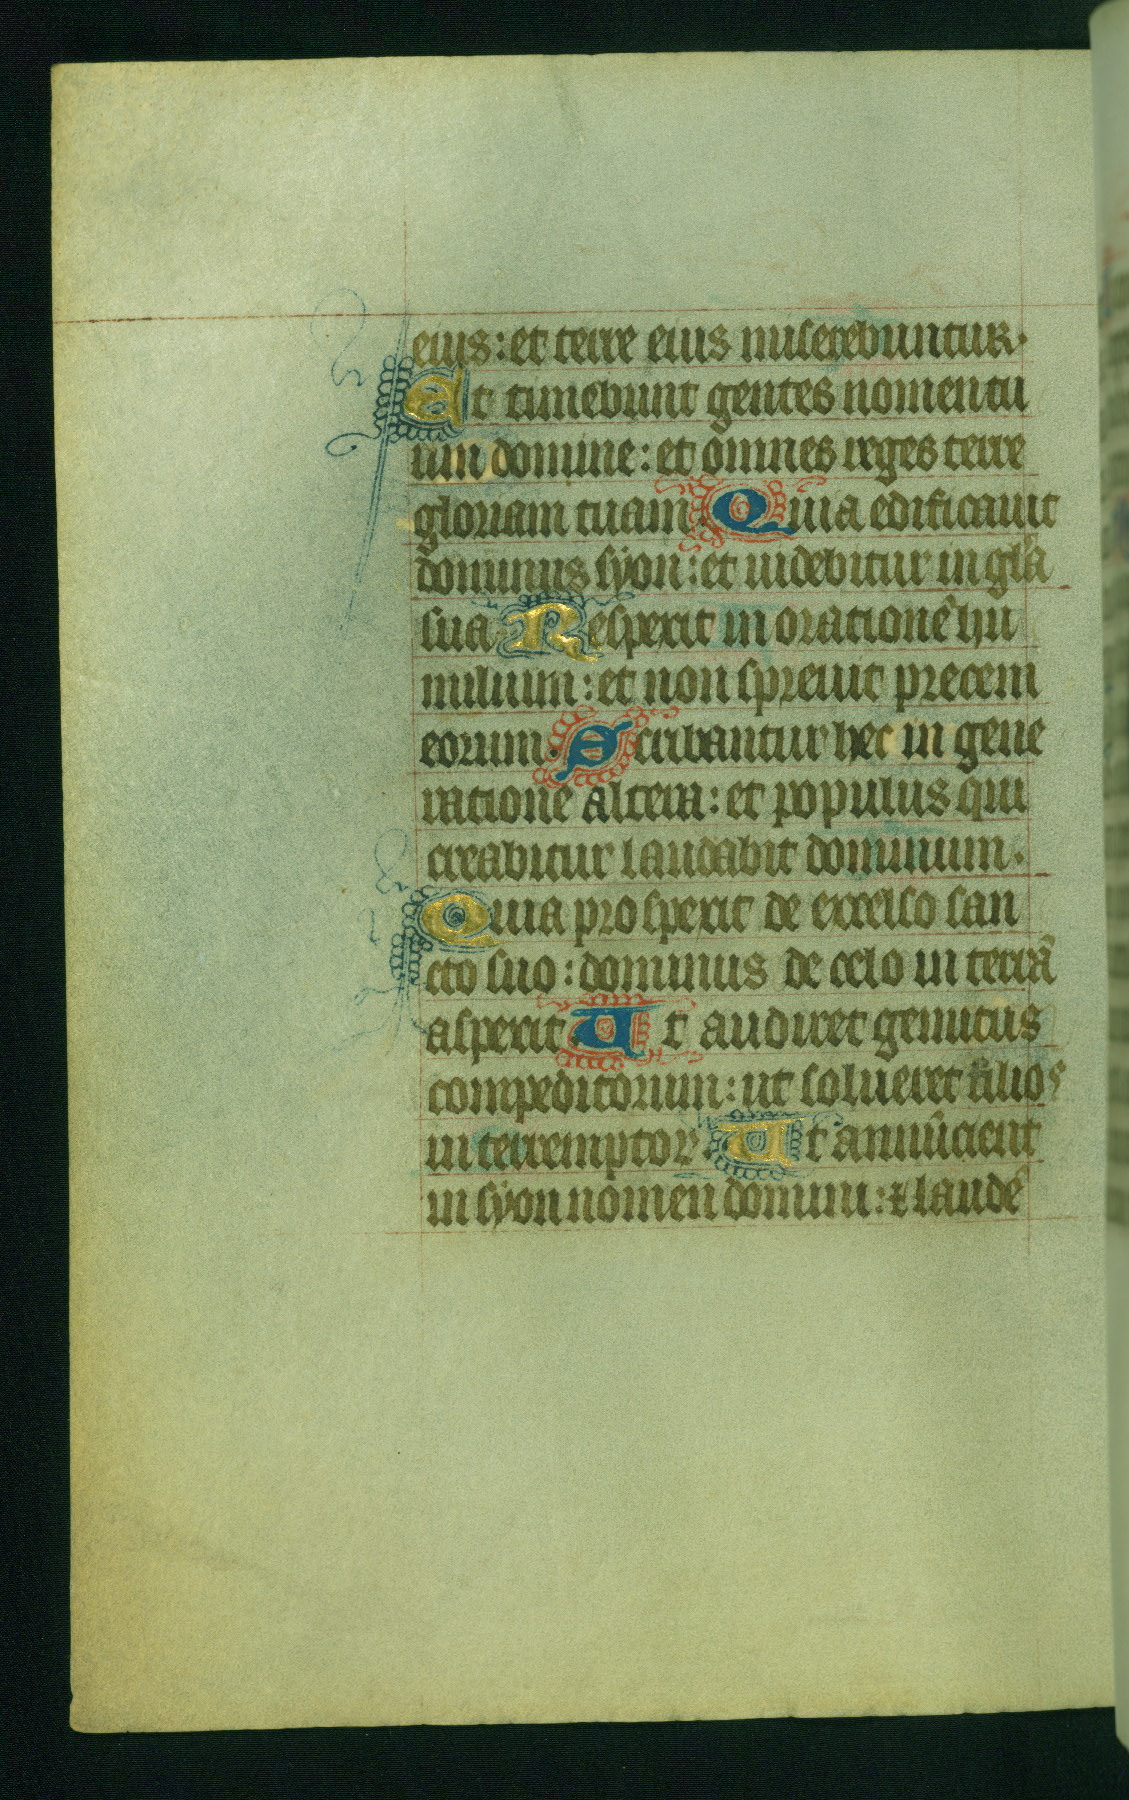 eius: et terre eius miserebuntur.
Et timebunt gentes nomen tu
um domine: et omnes reges terre
gloriam tuam. Quia edificauit
dominus syon: et uidebitur in glīa
sua. Respexit in orationē hu
milium: et non spreuit precem
eorum. Scribantur hec in gene
ratione altera: et populus qui
creabitur laudabit dominum.
Quia prospexit de excelso san
cto suo: dominus de celo in terrā
aspexit Ut audiret gemitus
compeditorum: ut solueret filios
interremptorꝝ. Ut annūcient
in syon nomen domini: ⁊ laudē